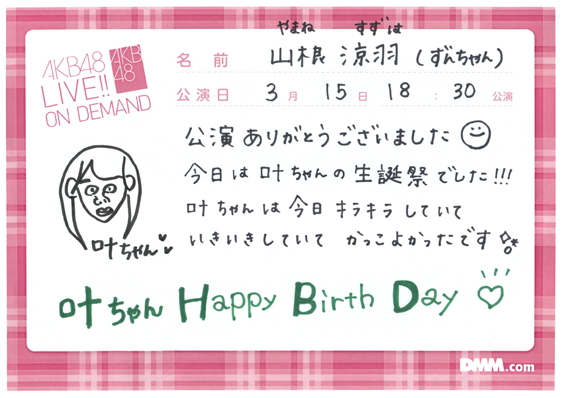 AKB48
LIVE!!
ON DEMAND
AKB
48
やまね すずは
名前 山根 涼羽 (ずんちゃん)
公演日 3月 15日 18:30 公演
公演ありがとうございました
今日は叶ちゃんの生誕祭でした!!!
叶ちゃんは今日キラキラしていて
いきいきしていて かっこよかったです
叶ちゃん
叶ちゃん Happy Birth Day
DMM.com